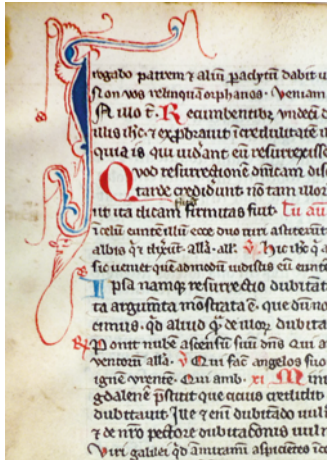 rogabo patrem ⁊ aliū paclytū dabit u
Non vos relinquā orphanos. Veniam
In illo t̄. Recumbentibꝫ undeci d
illis ih̄c. ⁊ exprobrauit īcredulitatē i
quia is qui uidant eū resurrexisse
Quod resurrectionē dn̄icam disc
tarde crediderunt nō tam illor
ut ita dicam firmitas fiut. Cū au
ī celū euntē illū ecce duo uiri astiterunt
albis qͥ ⁊ dixūt. alla. all. v̄ Hic ih̄c q̄ a
sic ueniet quēadmodū uidistis eū euntē
Ipsa namqꝫ resurrectio dubitat
ta argumta mōstrata ē. que dū no
cimus. qd̄ aliud qͣ de illoꝝ dubita
℞ Ponit nubē ascensū suū dn̄s Qui a
ventorū alla. v̄ Qui fac̄ angelos suo
ignē vrentē. Qui amb. xi Min
gdalene p̄stitit que cicius credidit
dubitauit Ille ⁊ enī dubitādo uuln
⁊ de nr̄o pectore dubitationis uuln
Viri galilei qd̄ amirami aspicientes ī c